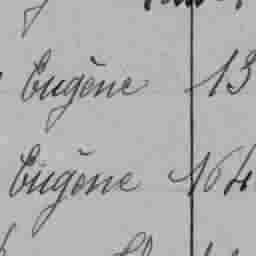 Eugène 13
Eugène 164